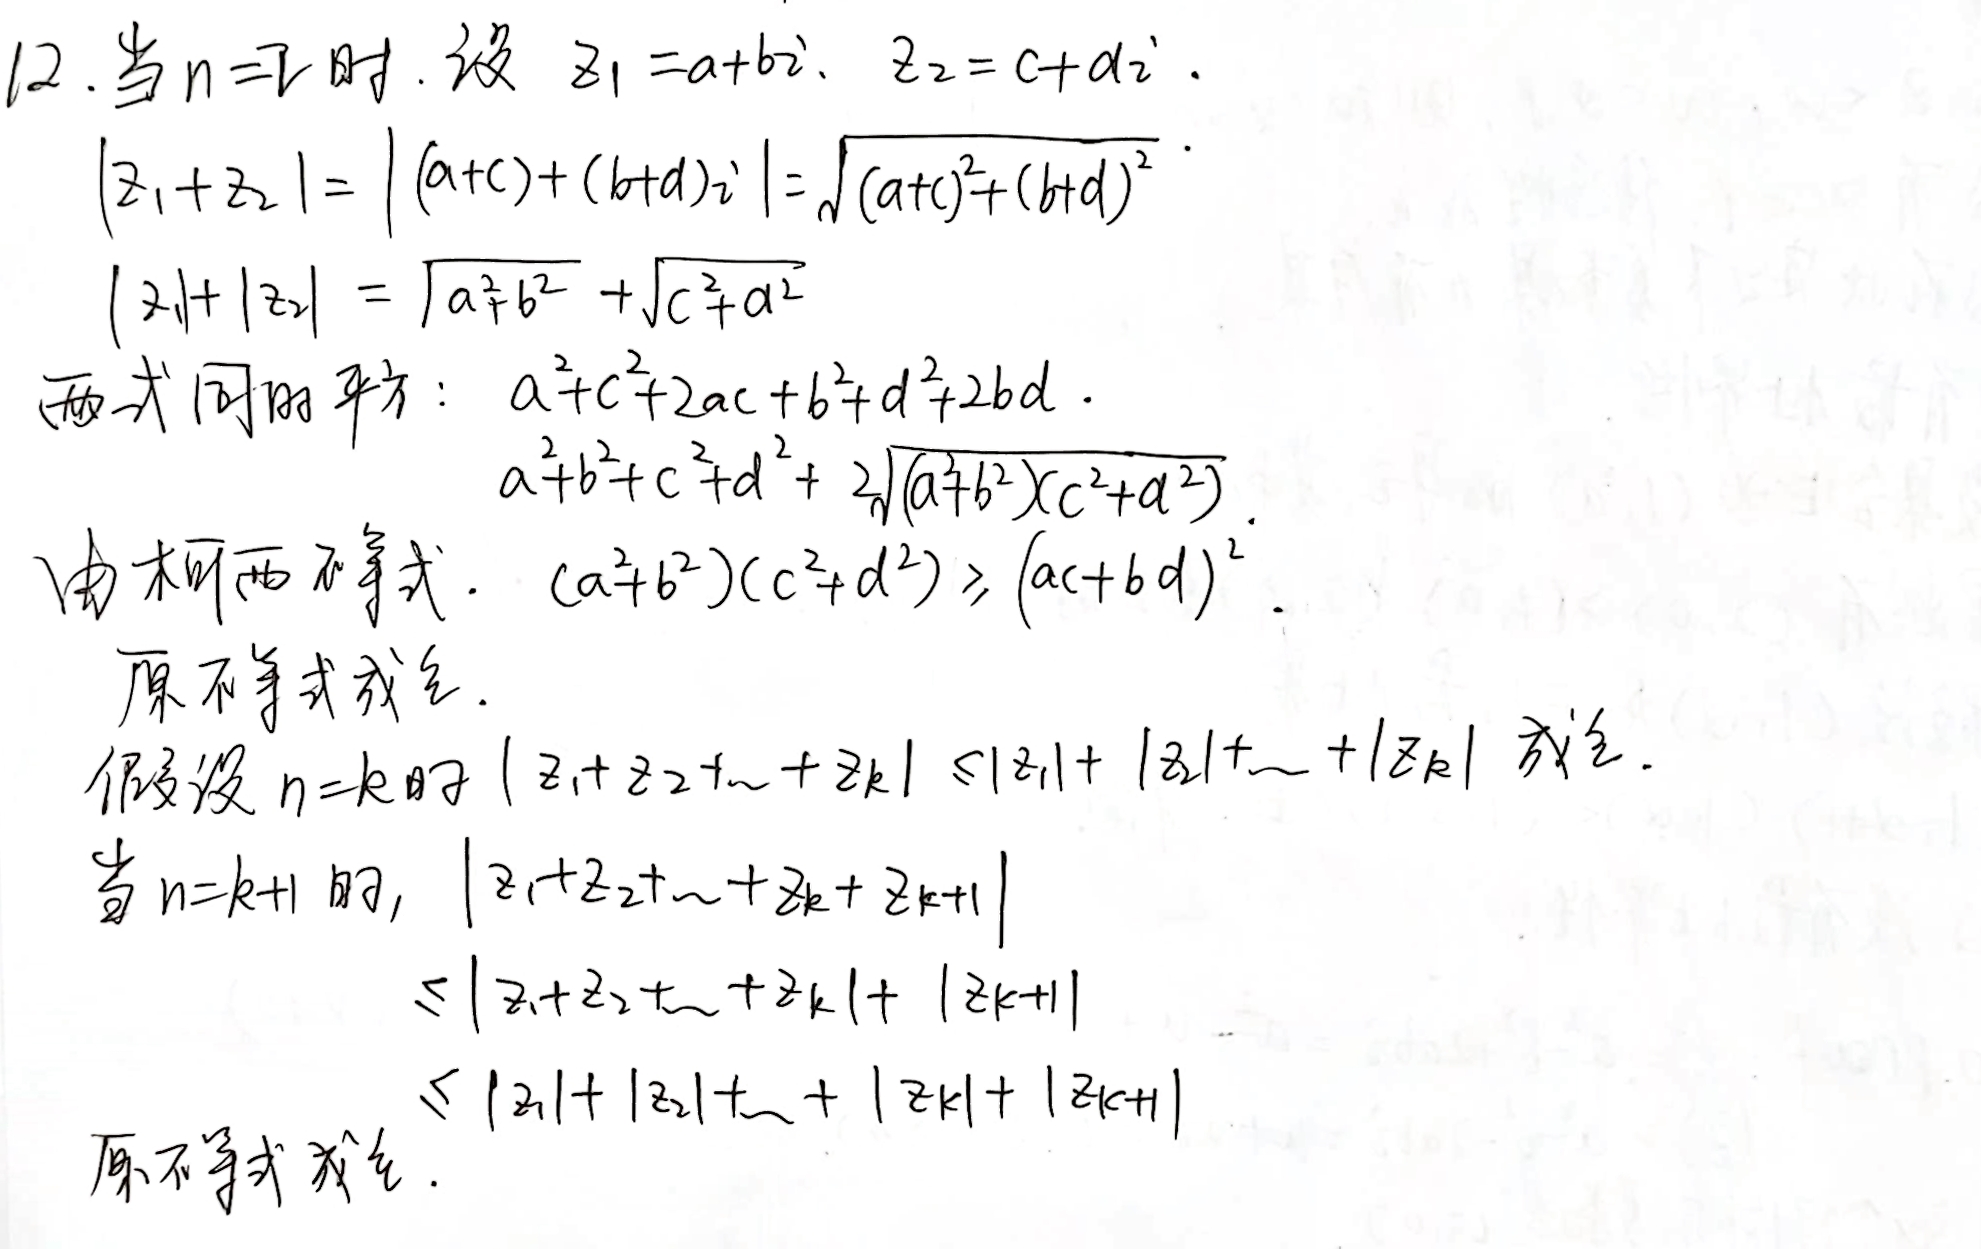 12. 当 n=2 时. 设 z₁=a+bi. z₂=c+di.
|z₁+z₂|=|(a+c)+(b+d)i|=√((a+c)²+(b+d)²).
|z₁|+|z₂| = √(a²+b²) +√(c²+d²)
两式同时平方: a²+c²+2ac+b²+d²+2bd.
a²+b²+c²+d²+ 2√((a²+b²)(c²+d²)).
由柯西不等式. (a²+b²)(c²+d²)≥(ac+bd)².
原不等式成立.
假设 n=k时 |z₁+z₂+…+zₖ| ≤|z₁|+|z₂|+…+|zₖ| 成立.
当 n=k+1 时, |z₁+z₂+…+zₖ+zₖ₊₁|
≤|z₁+z₂+…+zₖ|+|zₖ₊₁|
≤|z₁|+|z₂|+…+|zₖ|+|zₖ₊₁|
原不等式成立.